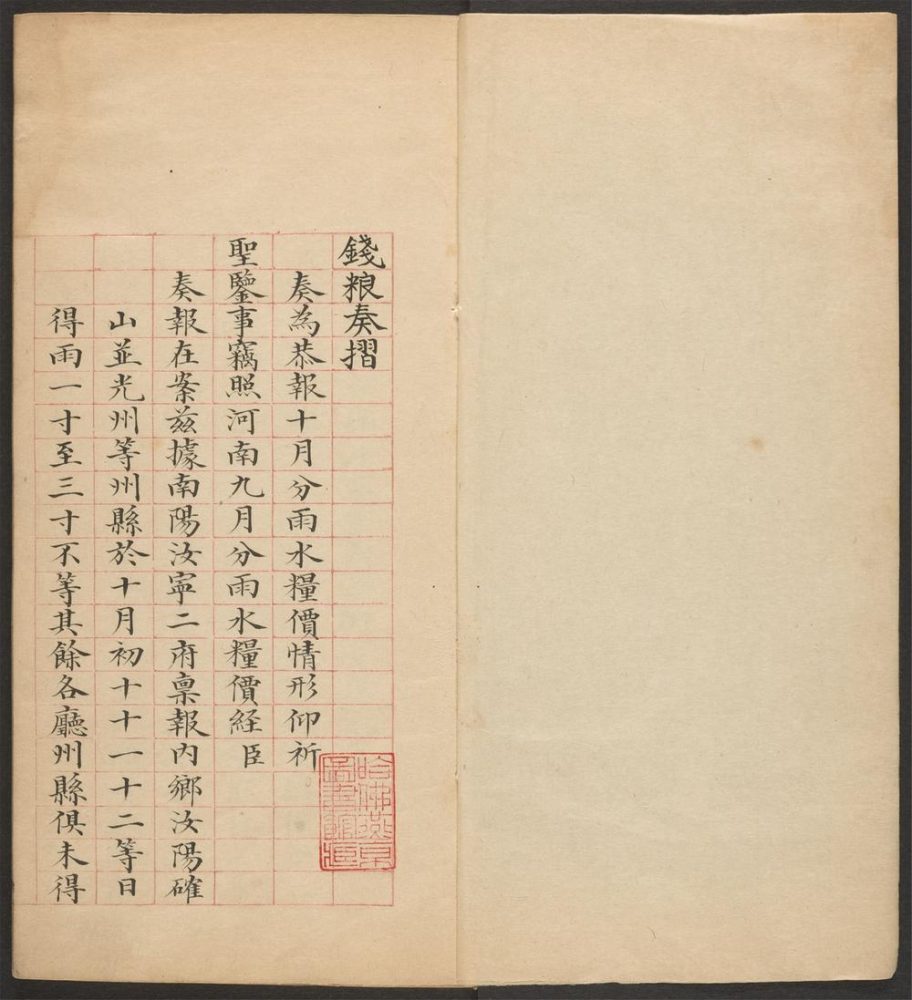 錢粮奏摺
奏為恭報十月分雨水糧價情形仰祈
聖鑒事竊照河南九月分雨水糧價経臣
奏報在案茲據南陽汝寧二府稟報內鄉汝陽確
山並光州等州縣於十月初十十一十二等日
得雨一寸至三寸不等其餘各廳州縣俱未得
哈佛燕京
圖書館珍藏